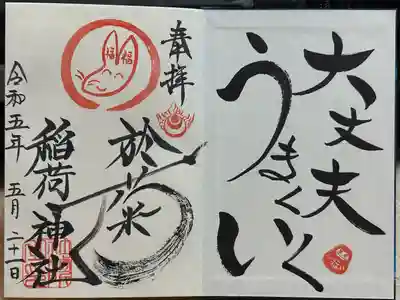 大丈夫
うまくいく
奉拝
於菊稲荷神社
令和五年 五月二十一日
福
福